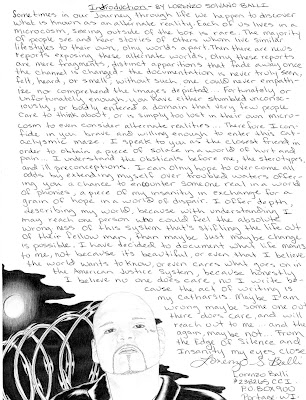 Introduction - BY LORENZO SOLANO BALLI
Sometimes in our Journey through life we happen to discover
what is known as an alternate reality. Each of us lives in a
microcosm, seeing outside of the box is rare. The majority
of people see and hear stories of others whom live similar
lifestyles to their own, olny worlds apart. Then there are news
reports exposing these alternate worlds. Olny, these reports
are mere fragments, distinct apparitions that fade away once
the channel is changed - the documentation is never truly seen,
felt, heard, or smelt; without such one could never empath-
ize nor comprehend the images depicted. Fortunately or
Unfortunately enough, you have either stumbled uncons-
ciously, or boldly entered a domain that very few people
care to think about, or is simply too lost in their own micro-
cosm to even consider alternate realities. Therefore I con-
fide in you brave and willing enough to enter this cat-
aclysmic maze. I speak to you as the closest friend in
order to obtain a piece of solace in a world of hurt and
pain... I understand the obsticals before me, the sterotypes,
and ill preconceptions. I can olny hope to overcome all
odds by extending myself over troubled waters offer-
ing you a chance to encounter someone real in a world
of phonies, a piece of my insanity, in exchange for a
grain of hope in a world of dispair. I offer depth,
describing my world, because with understanding I
may reach one person who could feel the absolute
wrongness of this system that's stifling the life out
of their fellow man, than maybe Just maybe change
is possible. I have decided to document what life means
to me, not because its beautiful, or even that I believe
the world wants to know, or even cares what goes on in
the American Justice System, because honestly
I believe no one does care, no I write be-
cause the act of writing is
my catharsis. Maybe I'am
wrong, maybe some one out
there does care, and will
reach out to me... and then
again, maybe not. From
the Edge of Silence and
Insanity my eyes close
Lorenzo S Balli
Lorenzo Balli
#238265 CCI
P.O. BOX 900
Portage WI.